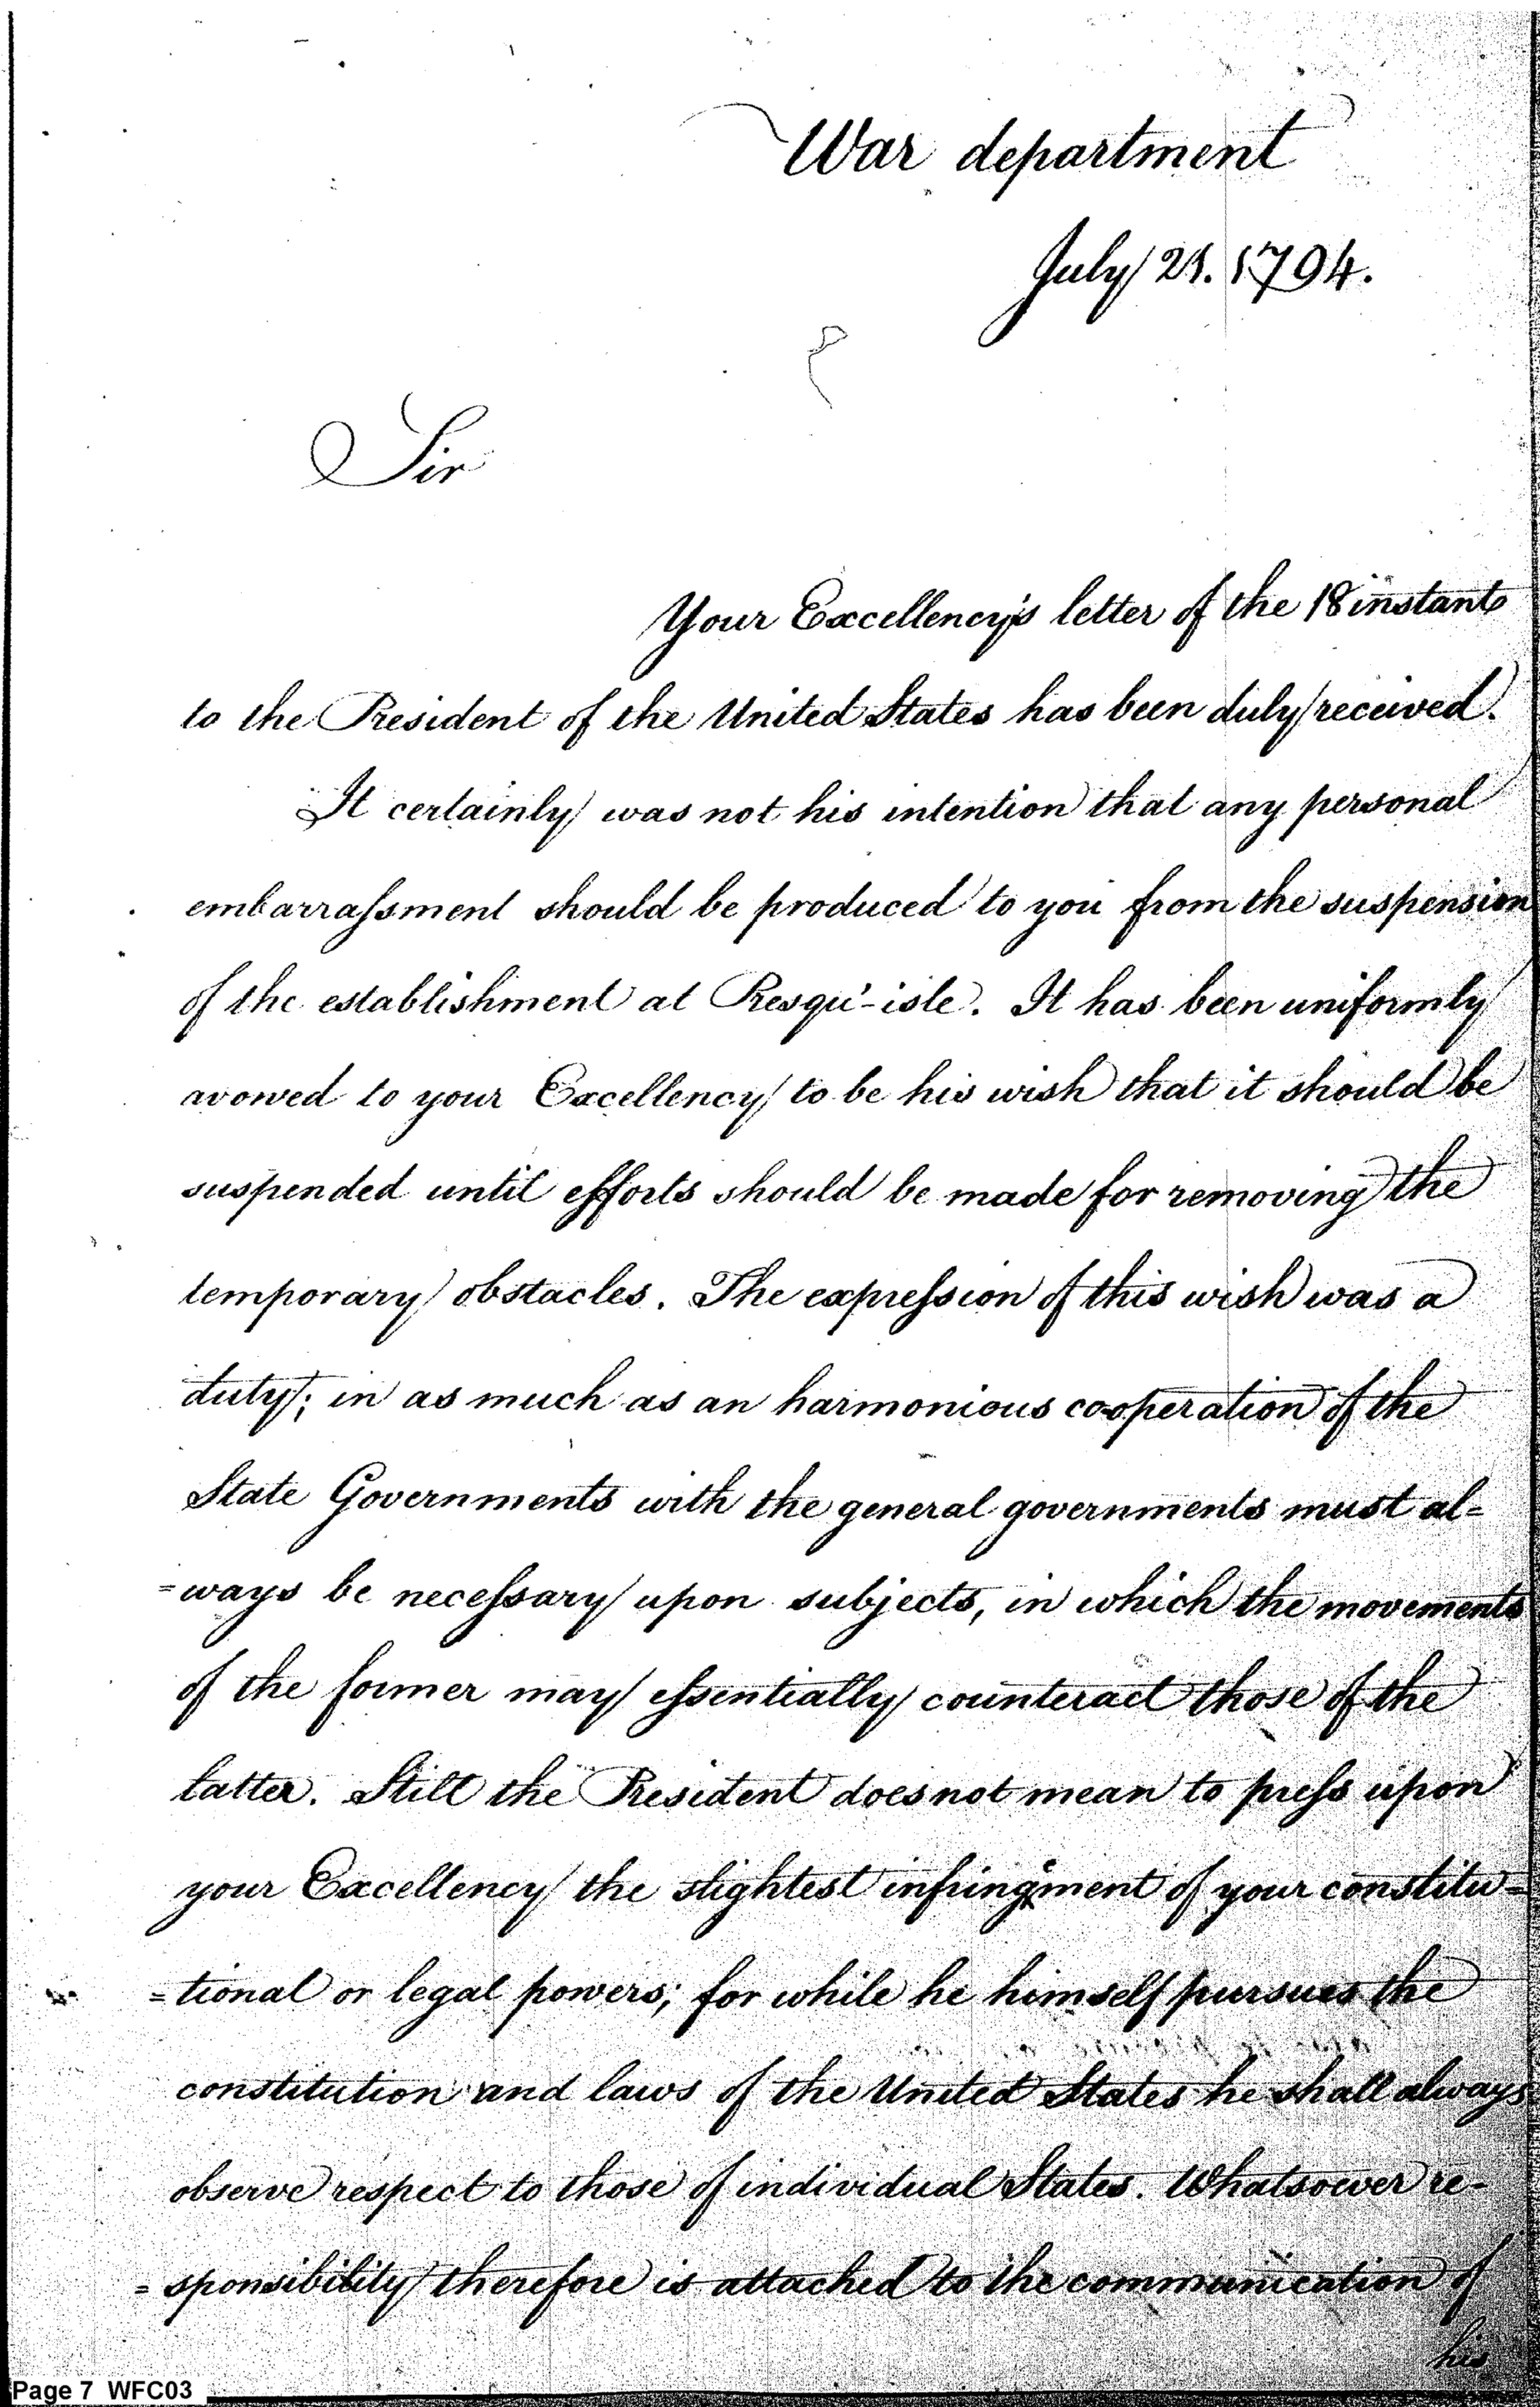 War department
July 21. 1794.
Sir
Your Excellency's letter of the 18 instant
to the President of the United States has been duly received.
It certainly was not his intention that any personal
embarraſsment should be produced to you from the suspension
of the establishment at Presqu'-isle. It has been uniformly
avowed to your Excellency to be his wish that it should be
suspended until efforts should be made for removing the
temporary obstacles. The expreſsion of this wish was a
duty; in as much as an harmonious cooperation of the
State Governments with the general governments must al=
=ways be neceſsary upon subjects, in which the movements
of the former may eſsentially counteract those of the
latter. Still the President does not mean to preſs upon
your Excellency the slightest infringment of your constitu=
=tional or legal powers; for while he himself pursues the
constitution and laws of the United States he shall always
observe respect to those of individual States. Whatsoever re-
=sponsibility therefore is attached to the communication of
his
Page 7 WFC03